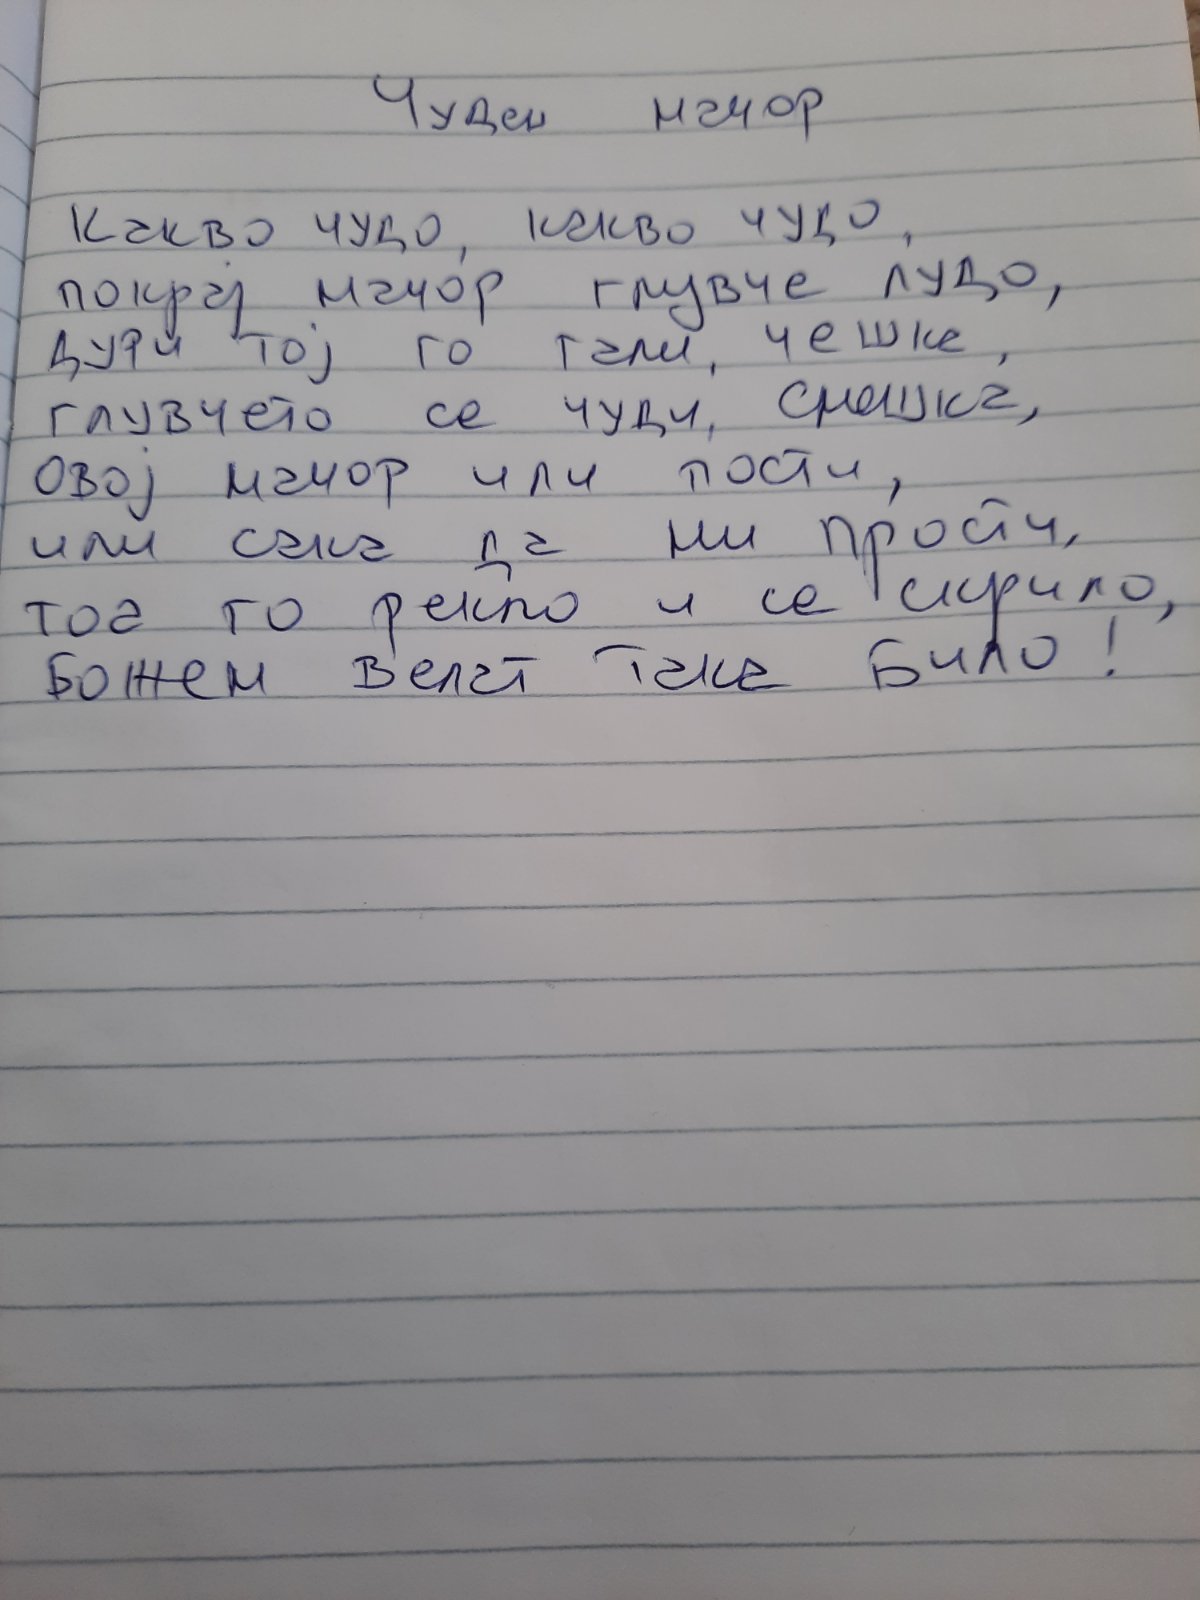 Чуден мачор
Какво чудо, какво чудо,
покрај мачор глувче лудо,
дури тој го гали, чешка,
глувчето се чуди, смешка,
Овој мачор или пости,
или сака да ни прости,
тоа го рекло и се скрило,
Божем велат така било!